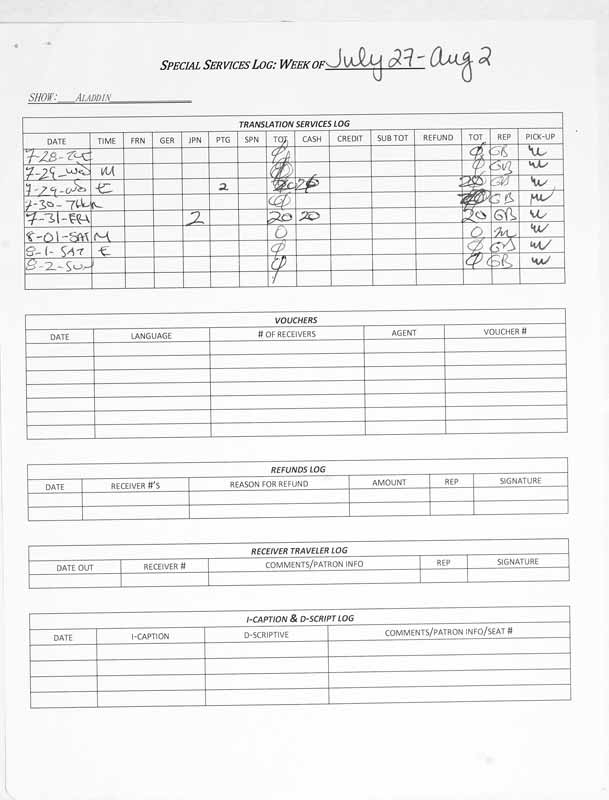 SPECIAL SERVICES LOG: WEEK OF July 27- Aug 2
SHOW: ALADDIN
TRANSLATION SERVICES LOG
DATE TIME FRN GER JPN PTG SPN TOT CASH CREDIT SUB TOT REFUND TOT REP PICK-UP
7-28-TUE 0 0 GB
7-29-WD M 0 0 GB
7-29-WD E 2 20 20 20 GB
7-30-THUR 0 GB
7-31-FRI 2 20 20 20 GB
8-01-SAT M 0 0
8-1-SAT E 0 0 GB
8-2-SUN 0 0 GB
VOUCHERS
DATE LANGUAGE # OF RECEIVERS AGENT VOUCHER #
REFUNDS LOG
DATE RECEIVER #'S REASON FOR REFUND AMOUNT REP SIGNATURE
RECEIVER TRAVELER LOG
DATE OUT RECEIVER # COMMENTS/PATRON INFO REP SIGNATURE
I-CAPTION & D-SCRIPT LOG
DATE I-CAPTION D-SCRIPTIVE COMMENTS/PATRON INFO/SEAT #